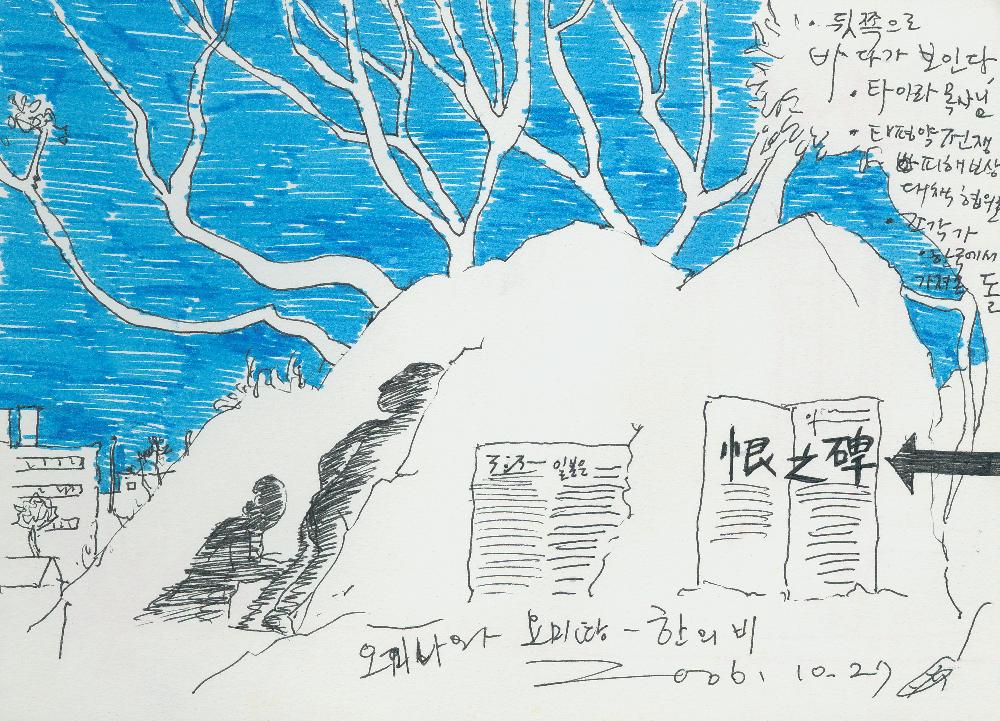 • 뒷쪽으로
바다가 보인다,
• 타이라 목사님
• 태평양전쟁
피해보상
대책협의회
• 조각가
• 한국에서
가져온 돌
일본은
恨之碑
오끼나와 요미땅 - 한의 비
2006. 10. 27